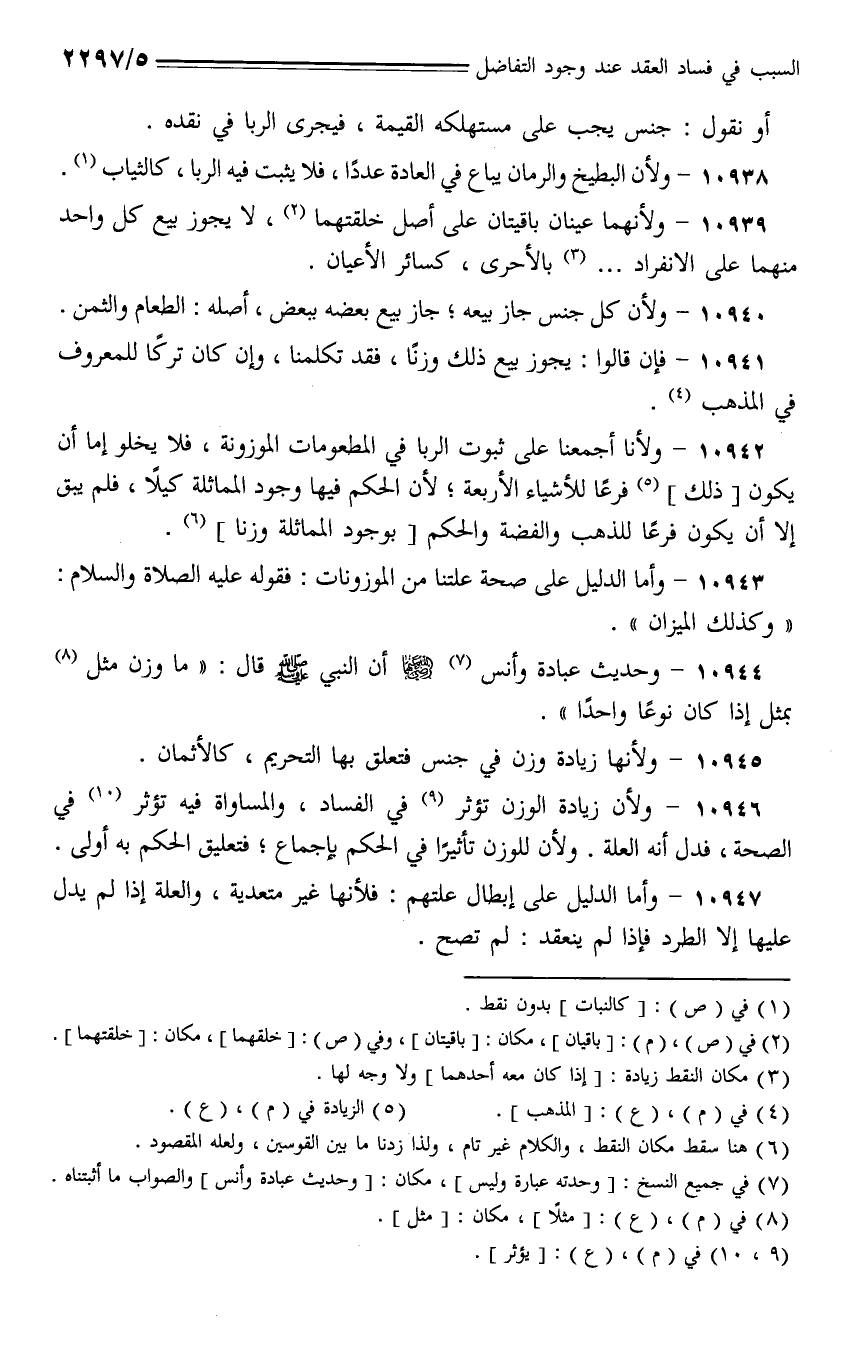 السبب في فساد العقد عند وجود التفاضل ٢٢٩٧/٥
أو نقول : جنس يجب على مستهلكه القيمة ، فيجرى الربا في نقده .
١٠٩٣٨ – ولأن البطيخ والرمان يباع في العادة عددًا ، فلا يثبت فيه الربا ، كالثياب (١) .
١٠٩٣٩ – ولأنهما عينان باقيتان على أصل خلقتهما (٢) ، لا يجوز بيع كل واحد
منهما على الانفراد ... (٣) بالأحرى ، كسائر الأعيان .
١٠٩٤٠ – ولأن كل جنس جاز بيعه ؛ جاز بيع بعضه ببعض ، أصله : الطعام والثمن .
١٠٩٤١ – فإن قالوا : يجوز بيع ذلك وزنًا ، فقد تكلمنا ، وإن كان تركًا للمعروف
في المذهب (٤) .
١٠٩٤٢ – ولأنا أجمعنا على ثبوت الربا في المطعومات الموزونة ، فلا يخلو إما أن
يكون [ ذلك ] (٥) فرعًا للأشياء الأربعة ؛ لأن الحكم فيها وجود المماثلة كيلًا ، فلم يبق
إلا أن يكون فرعًا للذهب والفضة والحكم [ بوجود المماثلة وزنا ] (٦) .
١٠٩٤٣ – وأما الدليل على صحة علتنا من الموزونات : فقوله عليه الصلاة والسلام :
« وكذلك الميزان » .
١٠٩٤٤ – وحديث عبادة وأنس (٧) رضي الله عنهما أن النبي ﷺ قال : « ما وزن مثل (٨)
بمثل إذا كان نوعًا واحدًا » .
١٠٩٤٥ – ولأنها زيادة وزن في جنس فتعلق بها التحريم ، كالأثمان .
١٠٩٤٦ – ولأن زيادة الوزن تؤثر (٩) في الفساد ، والمساواة فيه تؤثر (١٠) في
الصحة ، فدل أنه العلة . ولأن للوزن تأثيرًا في الحكم بإجماع ؛ فتعليق الحكم به أولى .
١٠٩٤٧ – وأما الدليل على إبطال علتهم : فلأنها غير متعدية ، والعلة إذا لم يدل
عليها إلا الطرد فإذا لم ينعقد : لم تصح .
(١) في ( ص ) : [ كالنبات ] بدون نقط .
(٢) في ( ص ) ، ( م ) : [ باقيان ] ، مكان : [ باقيتان ] ، وفي ( ص ) : [ خلقهما ] ، مكان : [ خلقتهما ] .
(٣) مكان النقط زيادة : [ إذا كان معه أحدهما ] ولا وجه لها .
(٤) في ( م ) ، ( ع ) : [ المذهب ] . (٥) الزيادة في ( م ) ، ( ع ) .
(٦) هنا سقط مكان النقط ، والكلام غير تام ، ولذا زدنا ما بين القوسين ، ولعله المقصود .
(٧) في جميع النسخ : [ وحدته عبارة وليس ] ، مكان : [ وحديث عبادة وأنس ] والصواب ما أثبتناه .
(٨) في ( م ) ، ( ع ) : [ مثلًا ] ، مكان : [ مثل ] .
(٩ ، ١٠) في ( م ) ، ( ع ) : [ يؤثر ] .